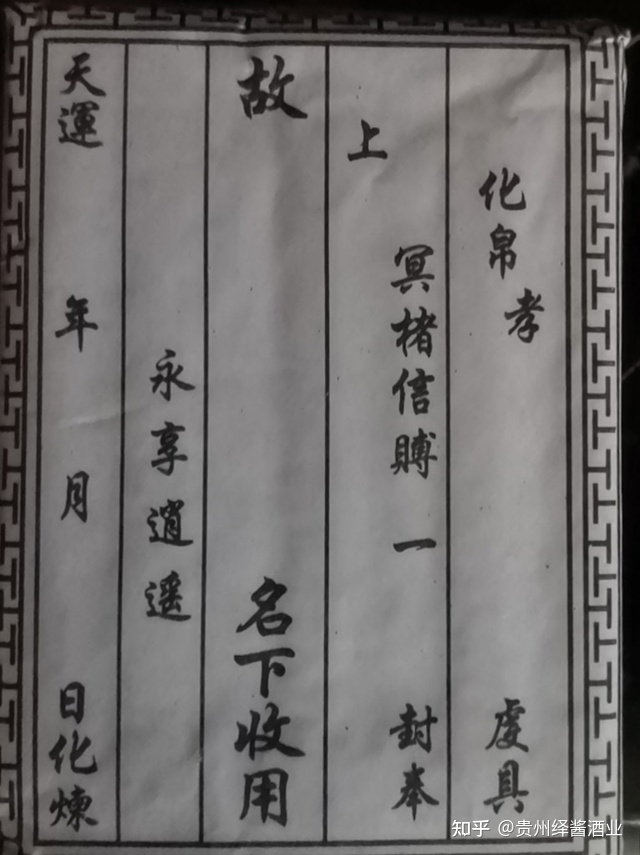 化帛孝 虔具
冥楮信賻 一 封奉
上
故 名下收用
永享逍遥
天運 年 月 日化煉
知乎 @贵州绎酱酒业